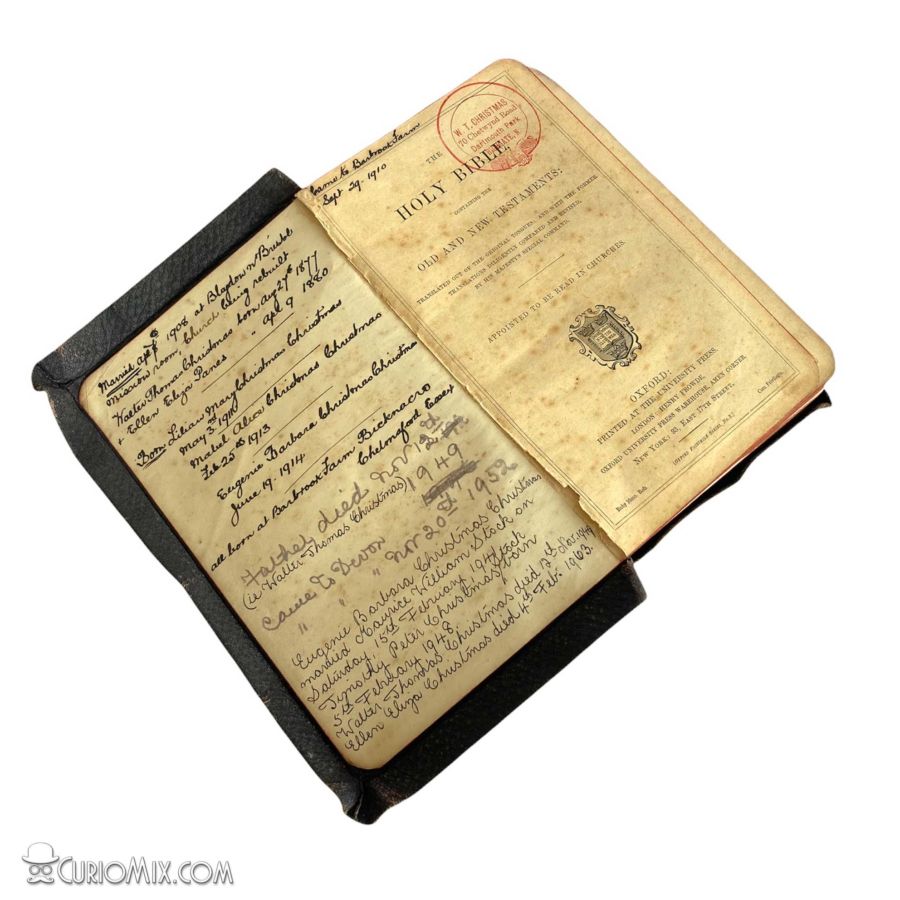 Married Apl 7th 1908 at Blagdon Nr Bristol
mission room, Church being rebuilt
Walter Thomas Christmas born Aug 27th 1877
& Ellen Eliza Panes Apl 9 1880
Born Lilian May Christmas Christmas
May 3rd 1910
Mabel Alice Christmas Christmas
Feb 25th 1913
Eugenie Barbara Christmas Christmas
June 19. 1914
all born at Barbrook Farm Bicknacre
Chelmsford Essex
Father died Nov 12th
(ie Walter Thomas Christmas) 1949
Came to Devon
" " " Nov 20th 1952
Eugenie Barbara Christmas Christmas
married Maurice William Stock on
Saturday, 15th February 1947
Timothy Peter Christmas Stock born
5th February 1948
Walter Thomas Christmas died Nov. 1949
Ellen Eliza Christmas died 4th Feb. 1963.
Came to Barbrook Farm
Sept 29. 1910
W. T. CHRISTMAS
70 Chetwynd Road
Dartmouth Park
THE
HOLY BIBLE,
CONTAINING THE
OLD AND NEW TESTAMENTS:
TRANSLATED OUT OF THE ORIGINAL TONGUES; AND WITH THE FORMER
TRANSLATIONS DILIGENTLY COMPARED AND REVISED,
BY HIS MAJESTY'S SPECIAL COMMAND.
APPOINTED TO BE READ IN CHURCHES.
OXFORD:
PRINTED AT THE UNIVERSITY PRESS.
LONDON: HENRY FROWDE,
OXFORD UNIVERSITY PRESS WAREHOUSE, AMEN CORNER.
NEW YORK: 93, EAST 17TH STREET.
Ruby 16mo. Refs.
Cum Privilegio.
CURIOMIX.COM